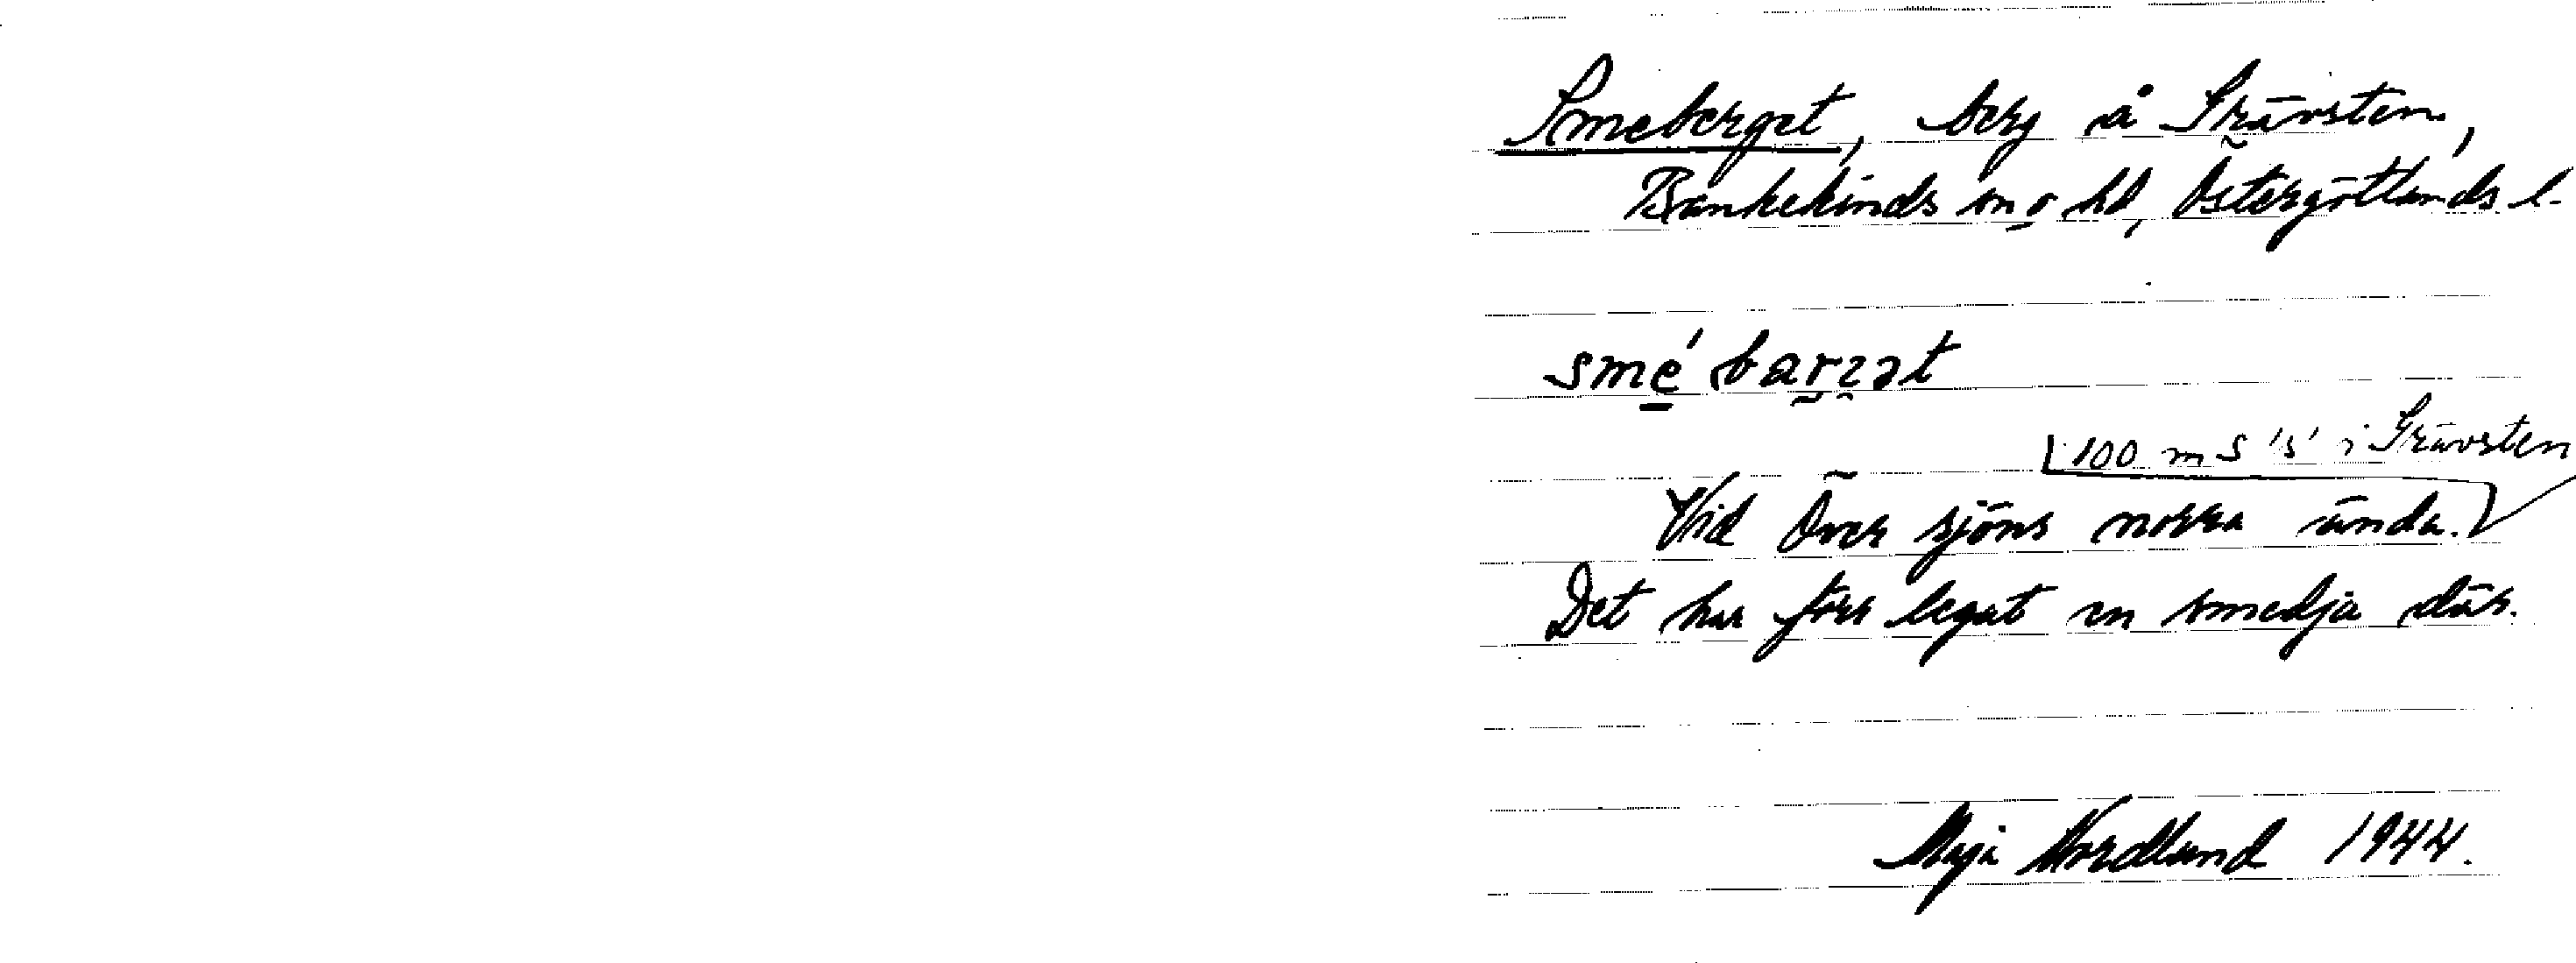 Smeberget, berg å Skävsten,
Bankekinds sn o hd, Östergötlands l.
smé barzət
100 m S 's' i Skävsten
Vid Över sjöns norra ända.
Det har förr legat en smedja där.
Maja Nordlund 1944.